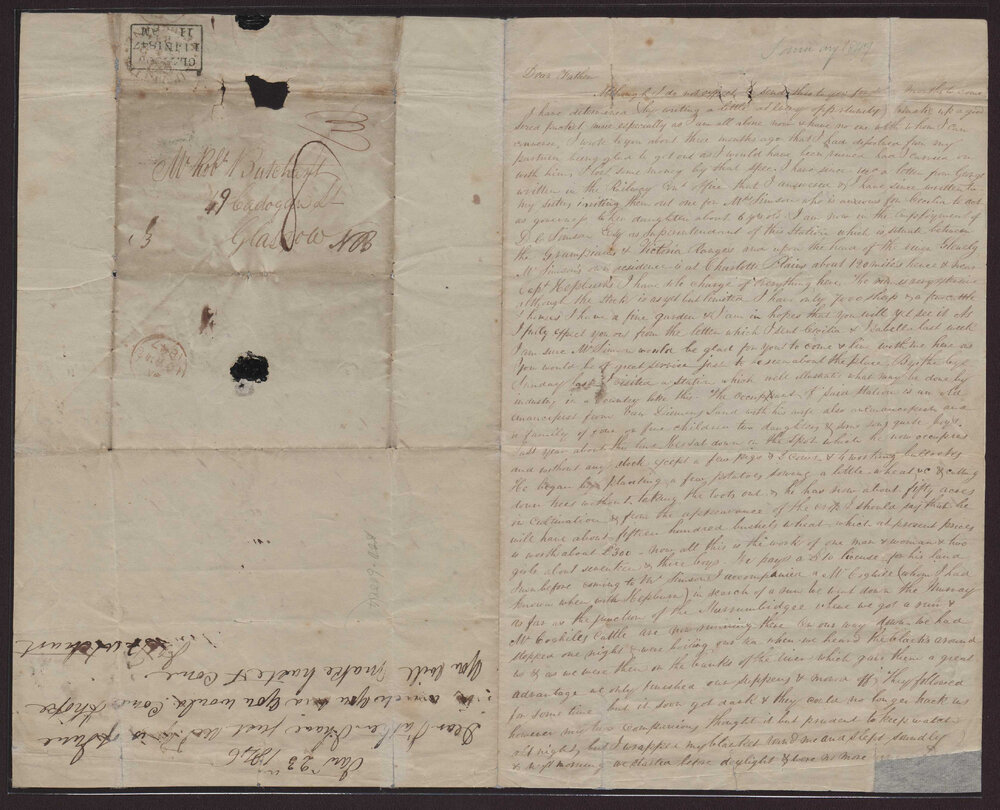 GLASGOW
11 JAN 1847
AM
Mr Robt Butchart
49 Cadogan St
Glasgow NB
8
Jan 23
1846
Dear Father
you will make haste & come
Dear Father
Although I do not expect to send this to you for a month to come
I have determined by writing a little at every opportunity to make up a good
sized packet more especially as I am all alone now & have no one with whom I can
converse, I wrote to you about three months ago that I had dissolved from my
partner being glad to get out as I would have been ruined had I carried on
with him, I lost some money by that spec. I have since got a letter from George
written in the Railway Office that I answered & I have since written to
my sisters inviting them out one for Mrs Simson who is anxious for Cecilia to act
as governess to her daughter about 6 years old I am now in the employment of
D C Simson Esq as Superintendent of this Station which is situate between
the Grampians & Victoria Ranges and upon the head of the river Glenelg
Mr Simsons own residence is at Charlotte Plains about 120 miles hence & near
Capt Hepburns I have the charge of everything here The run is very extensive
although the stock is as yet but limited I have only 7000 sheep & a few cattle
& horses I have a fine garden & I am in hopes that you will yet see it As
I fully expect you out from the letter which I sent Cecilia & Isabella last week
I am sure Mr Simson would be glad for you to come & live with me here as
you would be of great service just to see about the place, By the bye
Sunday last I visited a station which will illustrate what may be done by
industry in a country like this. The occupant of said station is an old
emancipist from Van Diemens Land with his wife also an emancipist and
a family of four or five children two daughters & some young boys.
last year about this time he sat down on the spot which he now occupies
and without any stock except a few pigs & 2 cows & 4 working bullocks
He began by planting a few potatoes sowing a little wheat &c & cutting
down trees without taking the roots out & he has now about fifty acres
in cultivation & from the appearance of the crops I should say that he
will have about fifteen hundred bushels wheat which at present prices
is worth about £300 - now all this is the work of one man & woman & two
girls about seventeen & three boys. He pays a £10 license for his land
Just before coming to Mr Simson I accompanied a Mr Coghill (whom I had
known when with Hepburn) in search of a run we went down the Murray
as far as the junction of the Murrumbidgee where we got a run &
Mr Coghills cattle are now running there on our way down we had
stopped one night & were boiling our tea when we heard the blacks around
us & as we were then on the banks of the river which gave them a great
advantage we only finished our supper & moved off, they followed
for some time but it soon got dark & they could no longer track us
however my two companions thought it but prudent to keep watch
all night, but I wrapped my blanket round me and slept soundly
& next morning we started before daylight & were no more